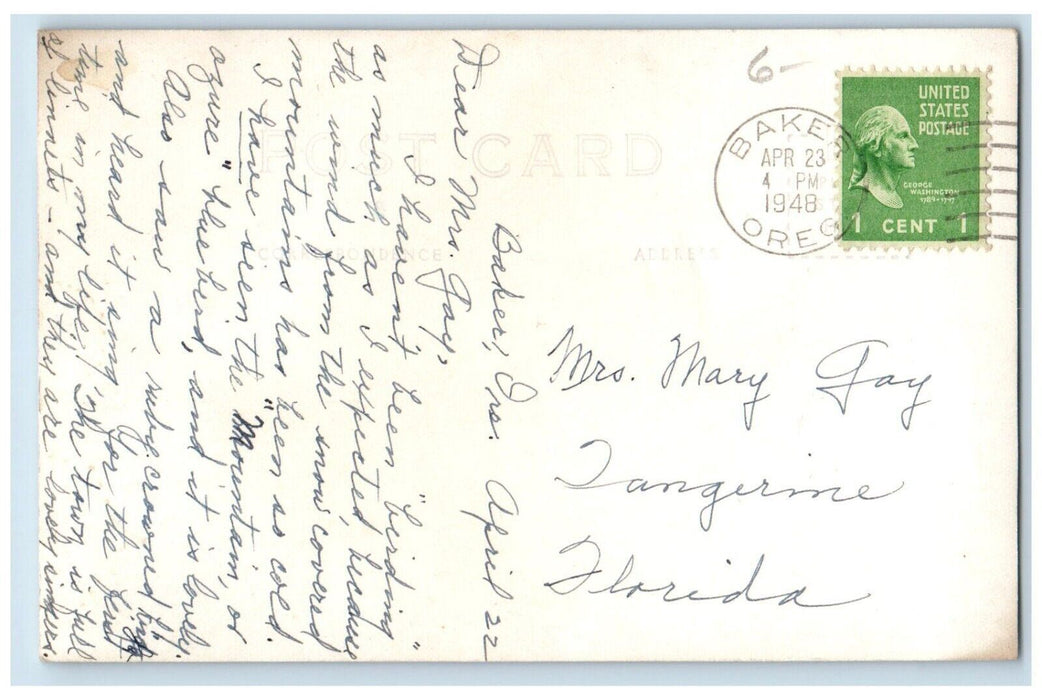 6-
UNITED
STATES
POSTAGE
GEORGE
WASHINGTON
1789-1797
1 CENT 1
BAKER
APR 23
4 PM
1948
OREG
POST CARD
CORRESPONDENCE
ADDRESS
Mrs. Mary Gay
Tangerine
Florida
Baker, Ore. April 22
Dear Mrs. Gay,
I haven't been "birding"
as much as I expected because
the wind from the snow covered
mountains has been so cold.
I have seen the "Mountain, or
azure" bluebird, and it is lovely.
Also saw a ruby crowned king
and heard it sing for the first
time in my life, The town is full
of linnets - and they are lovely singers.